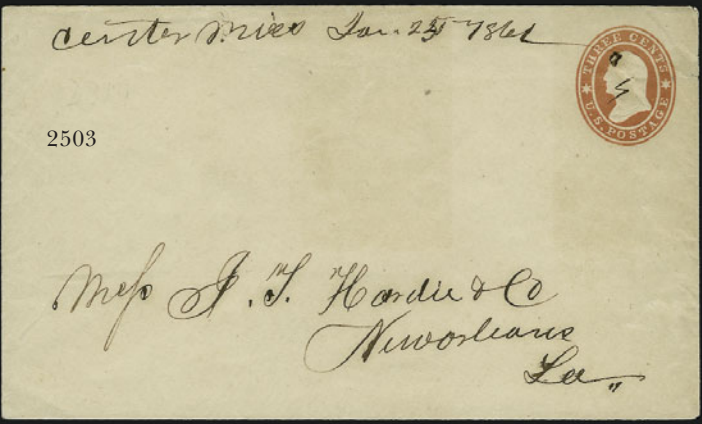 Center Miss Jan. 25 1861
THREE CENTS
U.S. POSTAGE
2503
Mess J. T. Hardie & Co
Neworleans
La